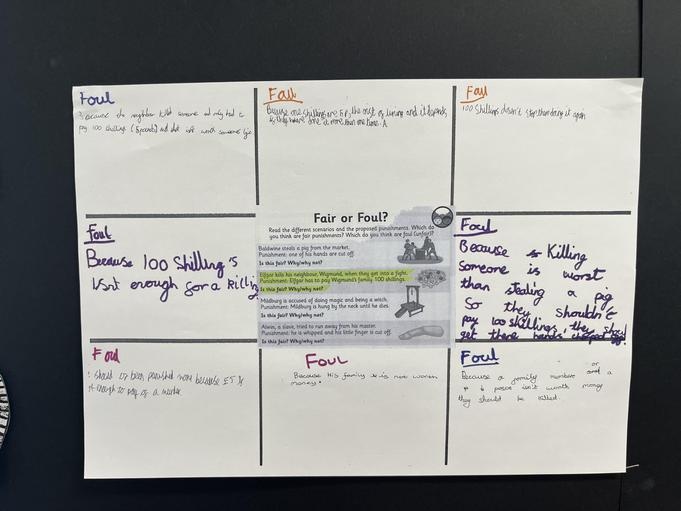 Foul
Because the neighbor killed someone and only had to
pay 100 shillings (5 pounds) and that isnt worth someones life.
Fair
Because one shilling are 5p, the cost of living and it depends
if they have done it more than one time. A
Fair
100 Shillings doesn't stop them doing it again
Foul
Because 100 Shilling's
isnt enough for a killing
Fair or Foul?
Read the different scenarios and the proposed punishments. Which do
you think are fair punishments? Which do you think are foul (unfair)?
Baldwine steals a pig from the market.
Punishment: one of his hands are cut off.
Is this fair? Why/why not?
Elfgar kills his neighbour, Wigmund, when they get into a fight.
Punishment: Elfgar has to pay Wigmund's family 100 shillings.
Is this fair? Why/why not?
Mildburg is accused of doing magic and being a witch.
Punishment: Mildburg is hung by the neck until he dies.
Is this fair? Why/why not?
Alwin, a slave, tried to run away from his master.
Punishment: he is whipped and his little finger is cut off.
Is this fair? Why/why not?
Foul
Because Killing
someone is worst
than stealing a pig
So they shouldn't
pay 100 shillings, they should
get there hands chopped off.
Foul
should of been punished more because £5 is
not enough to pay of a murder
Foul
Because His family is not worth
money.
Foul
Because a family member or
and a person isn't worth money
they should be killed.